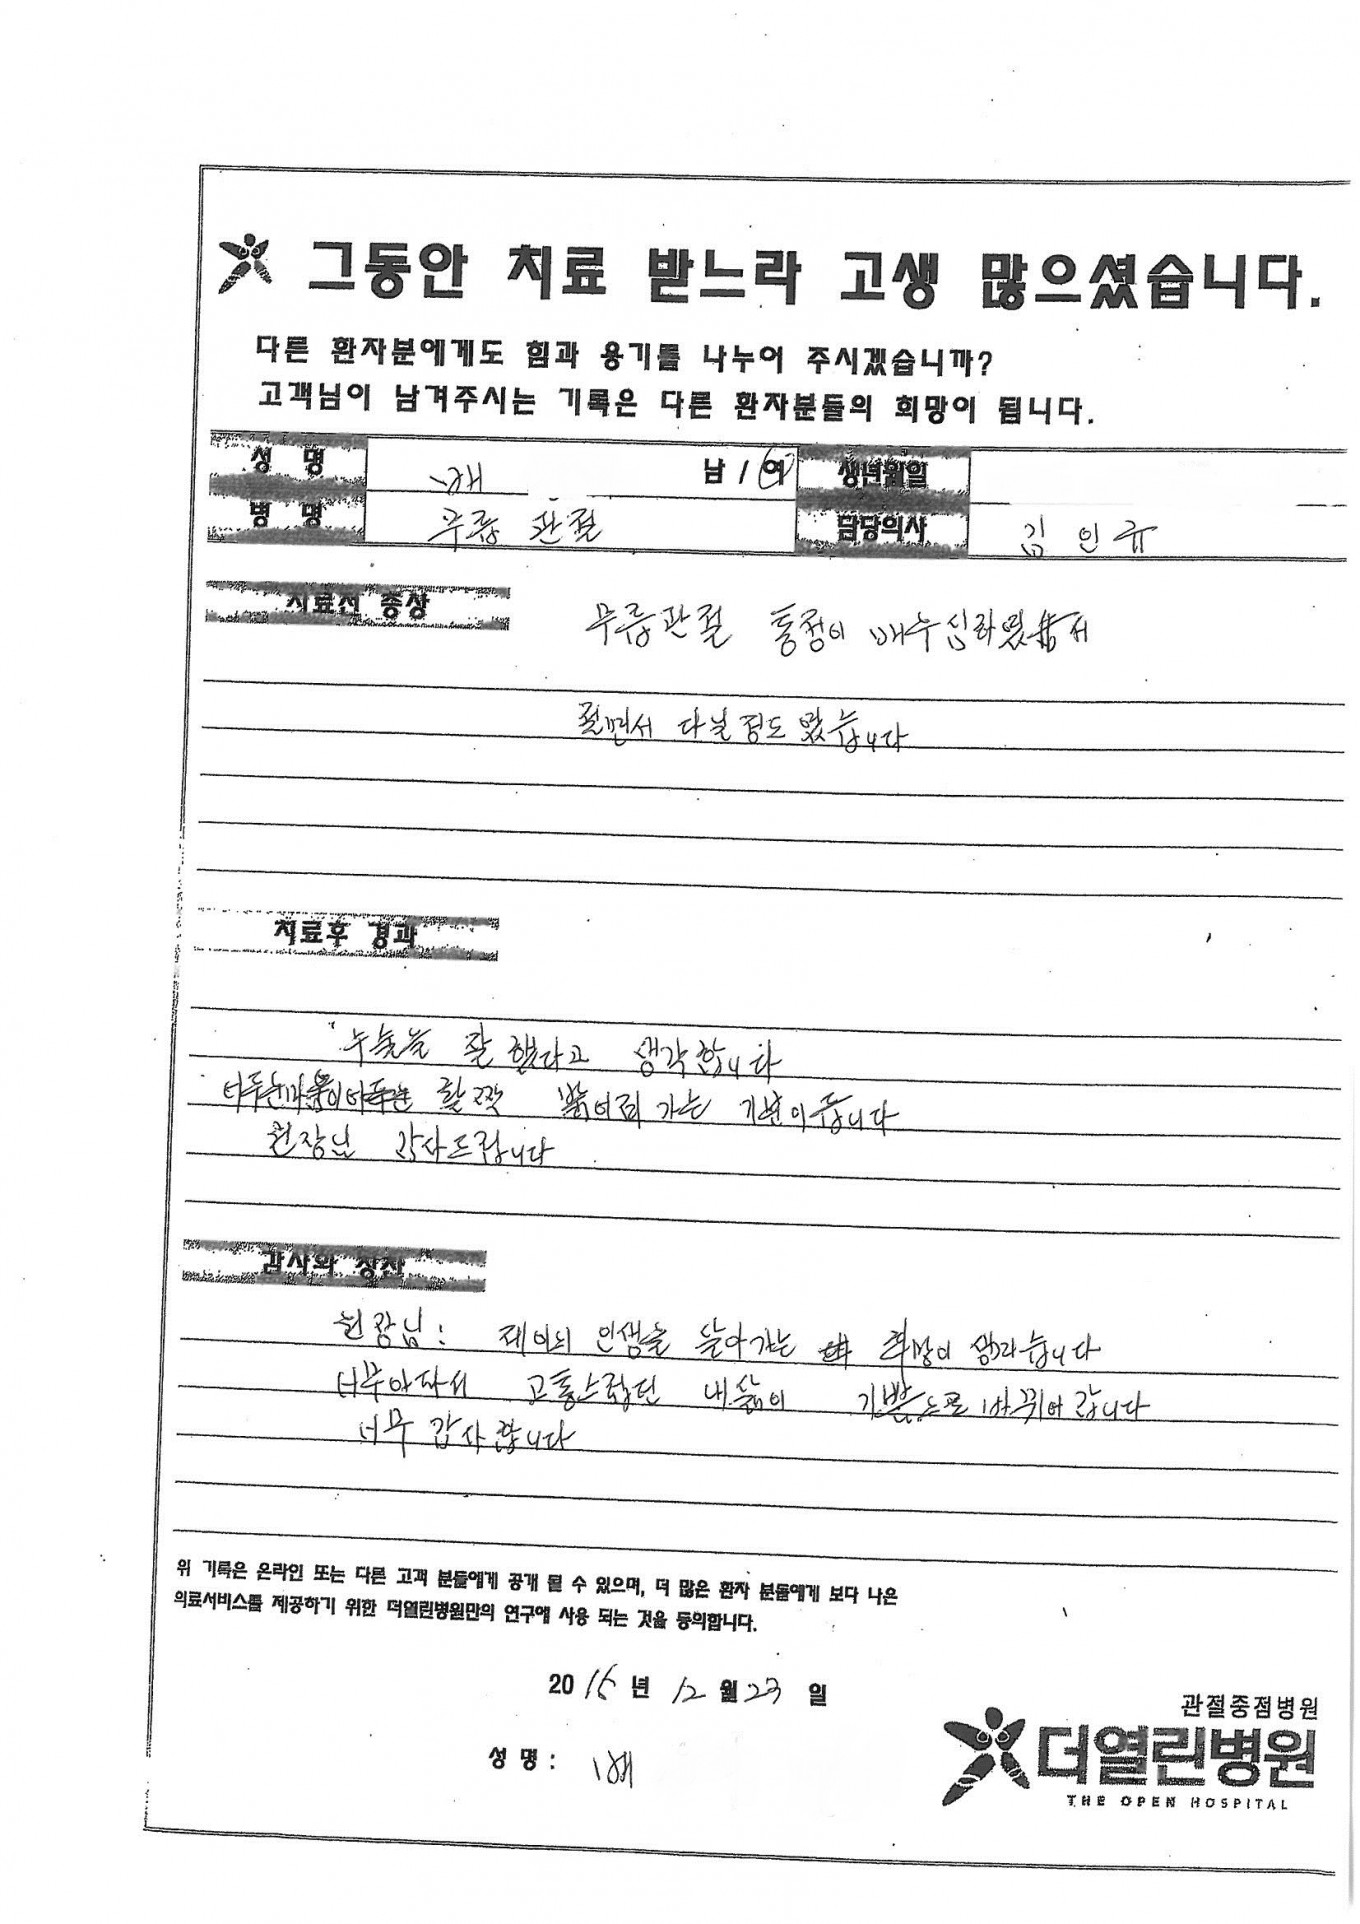 그동안 치료 받느라 고생 많으셨습니다.
다른 환자분에게도 힘과 용기를 나누어 주시겠습니까?
고객님이 남겨주시는 기록은 다른 환자분들의 희망이 됩니다.
성 명 남 / 여 생년월일
병 명 무릎 관절 담당의사 김 인 규
치료전 증상 무릎관절 통정이 매누 심라였
절면서 다닐 정도 였습니다
치료후 경과
잘 했다고 생각합니다
활짝 밝어져 가는 기분이
원장님 감사드립니다
감사와 칭찬
원장님: 제이의 인생을 살아가는 희망이
너무아파서 고통스럽던 내 삶이 기쁨으로 바뀌어 갑니다
너무 감사 합니다
위 기록은 온라인 또는 다른 고객 분들에게 공개 될 수 있으며, 더 많은 환자 분들에게 보다 나은
의료서비스를 제공하기 위한 더열린병원만의 연구에 사용 되는 것을 동의합니다.
20 15 년 12 월 23 일
관절중점병원
더열린병원
성 명 :
THE OPEN HOSPITAL